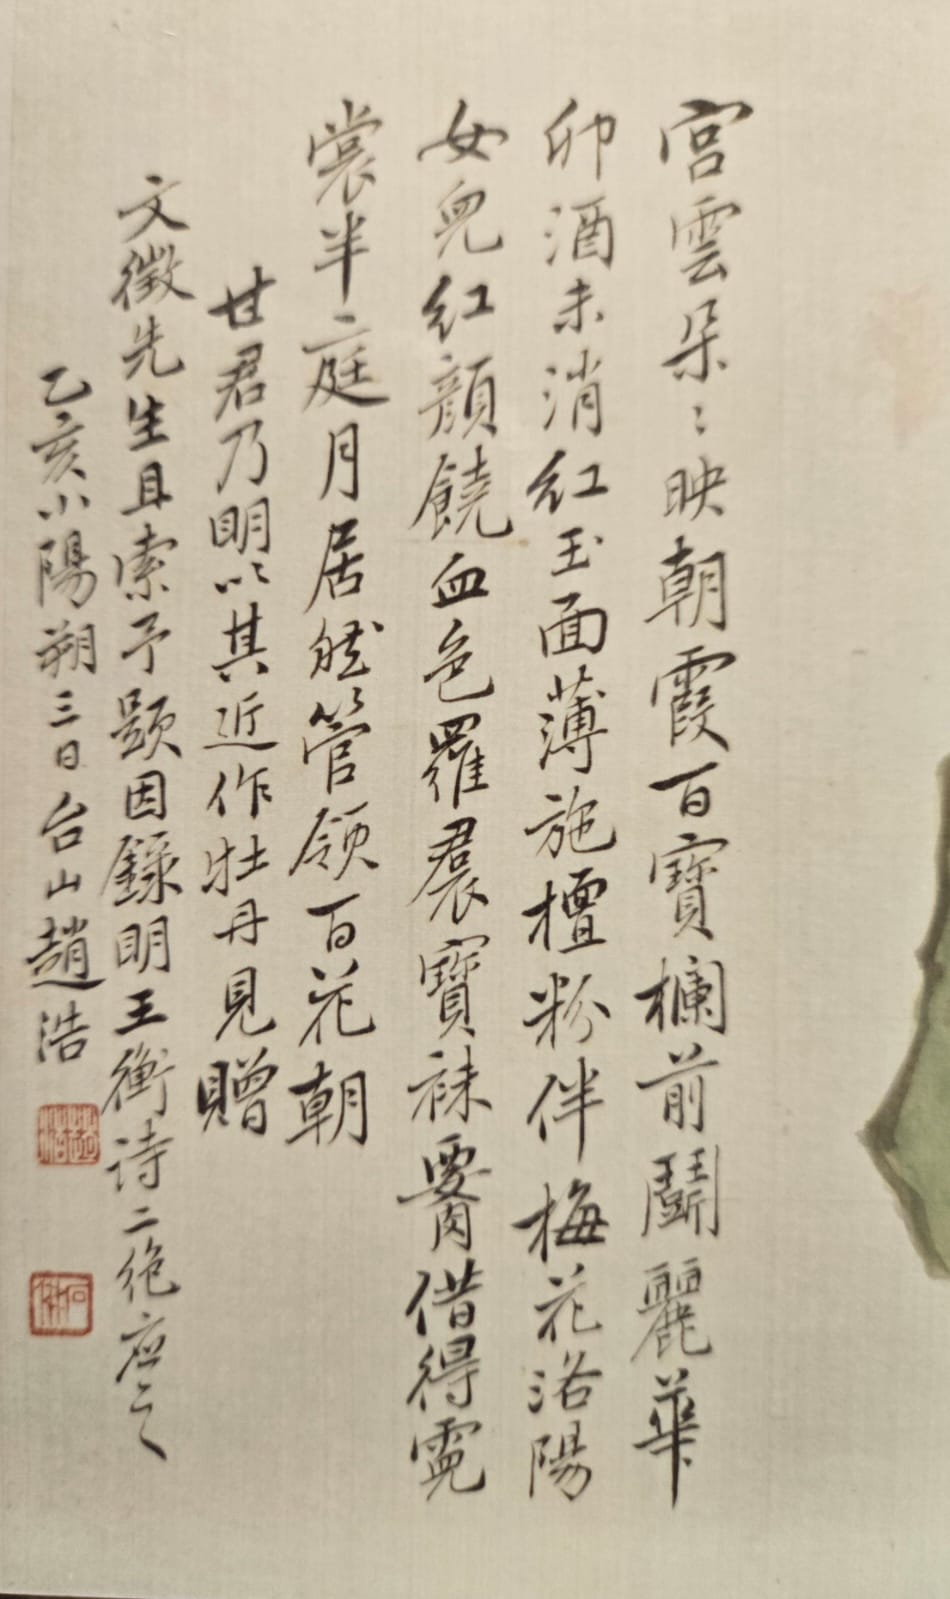 宮雲朵〻映朝霞百寶欄前鬪麗華
卯酒未消紅玉面薄施檀粉伴梅花洛陽
女兒紅顏饒血色羅裙寶襪腰借得霓
裳半庭月居然管領百花朝
甘君乃明以其近作牡丹見贈
文徵先生且索予題因錄明王衡诗二絶應之
乙亥小陽朔三日台山趙浩